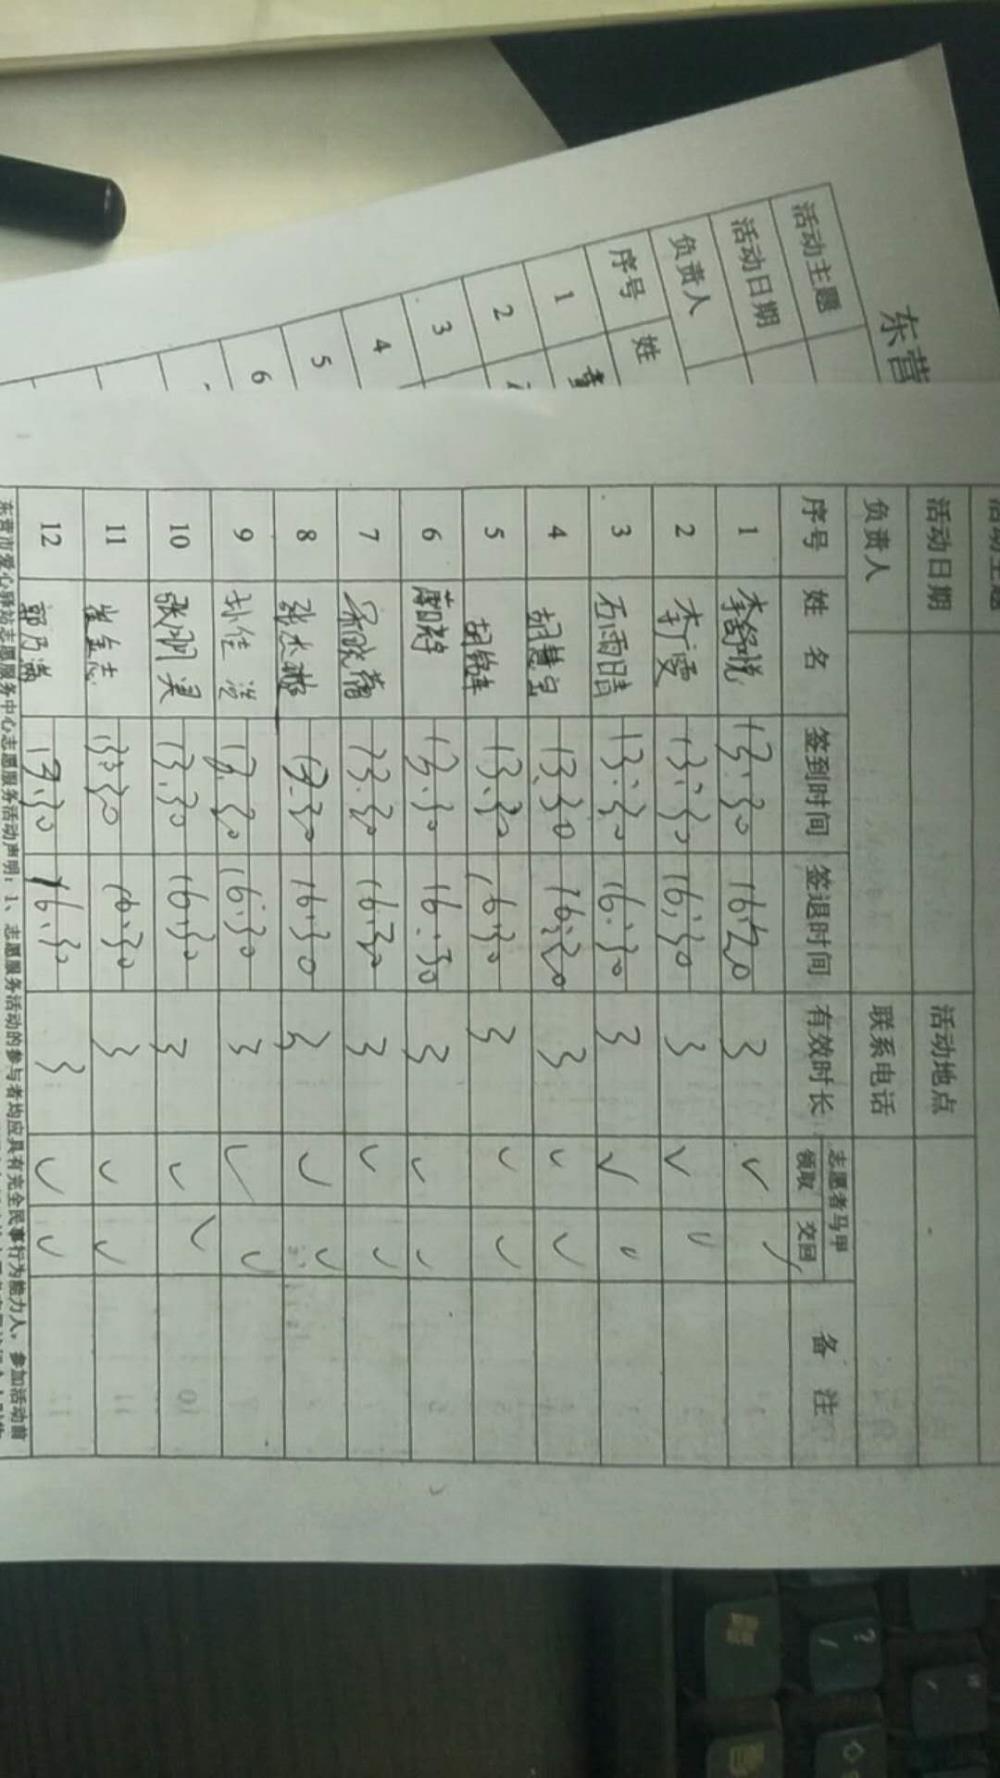 东营
活动主题
活动日期
负责人
序号 姓
1
2
3
4
5
6
活动主题
活动日期 活动地点
负责人 联系电话
序号 姓 名 签到时间 签退时间 有效时长 志愿者马甲 领取 交回 备 注
1 李舒悦 13:30 16:30 3 ✓ ✓
2 李雯 13:30 16:30 3 ✓ ✓
3 石雨晴 13:30 16:30 3 ✓ ✓
4 胡慧 13:30 16:30 3 ✓ ✓
5 13:30 16:30 3 ✓ ✓
6 13:30 16:30 3 ✓ ✓
7 宋晓蕾 13:30 16:30 3 ✓ ✓
8 13:30 16:30 3 ✓ ✓
9 13:30 16:30 3 ✓ ✓
10 13:30 16:30 3 ✓ ✓
11 崔金志 13:30 16:30 3 ✓ ✓
12 郭乃 13:30 16:30 3 ✓ ✓
东营市爱心驿站志愿服务中心志愿服务活动声明：1、志愿服务活动的参与者均应具有完全民事行为能力人，参加活动前